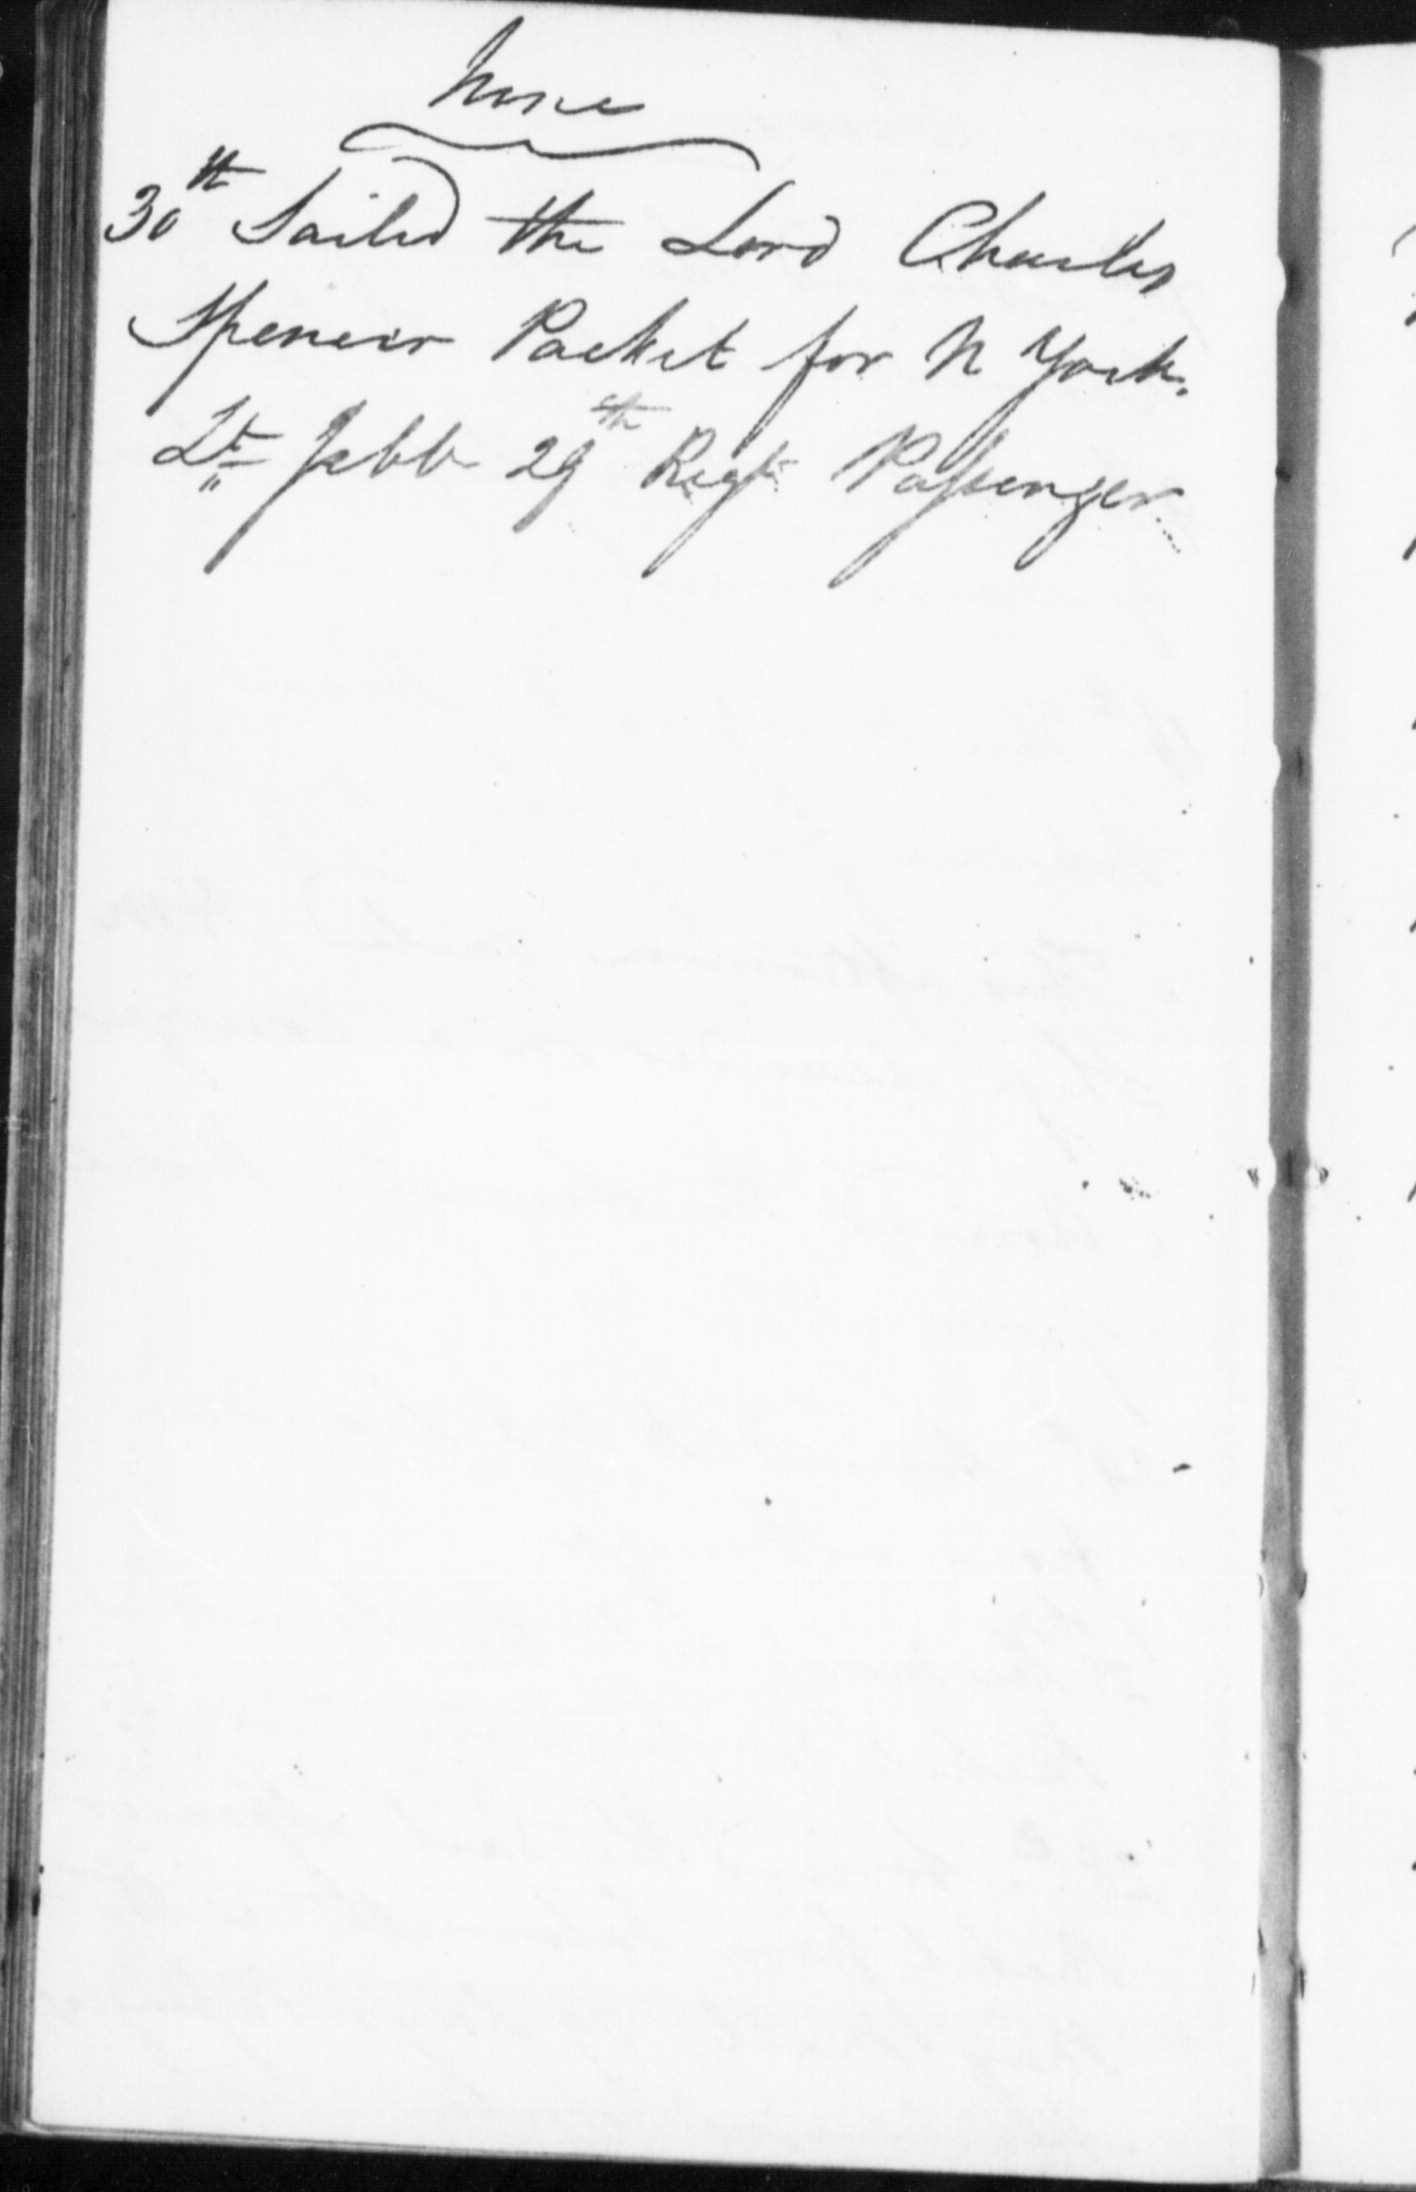 None
30th Sailed the Lord Charles
Spencer Packet for N York.
Lt Jebb 29th Regt Passenger